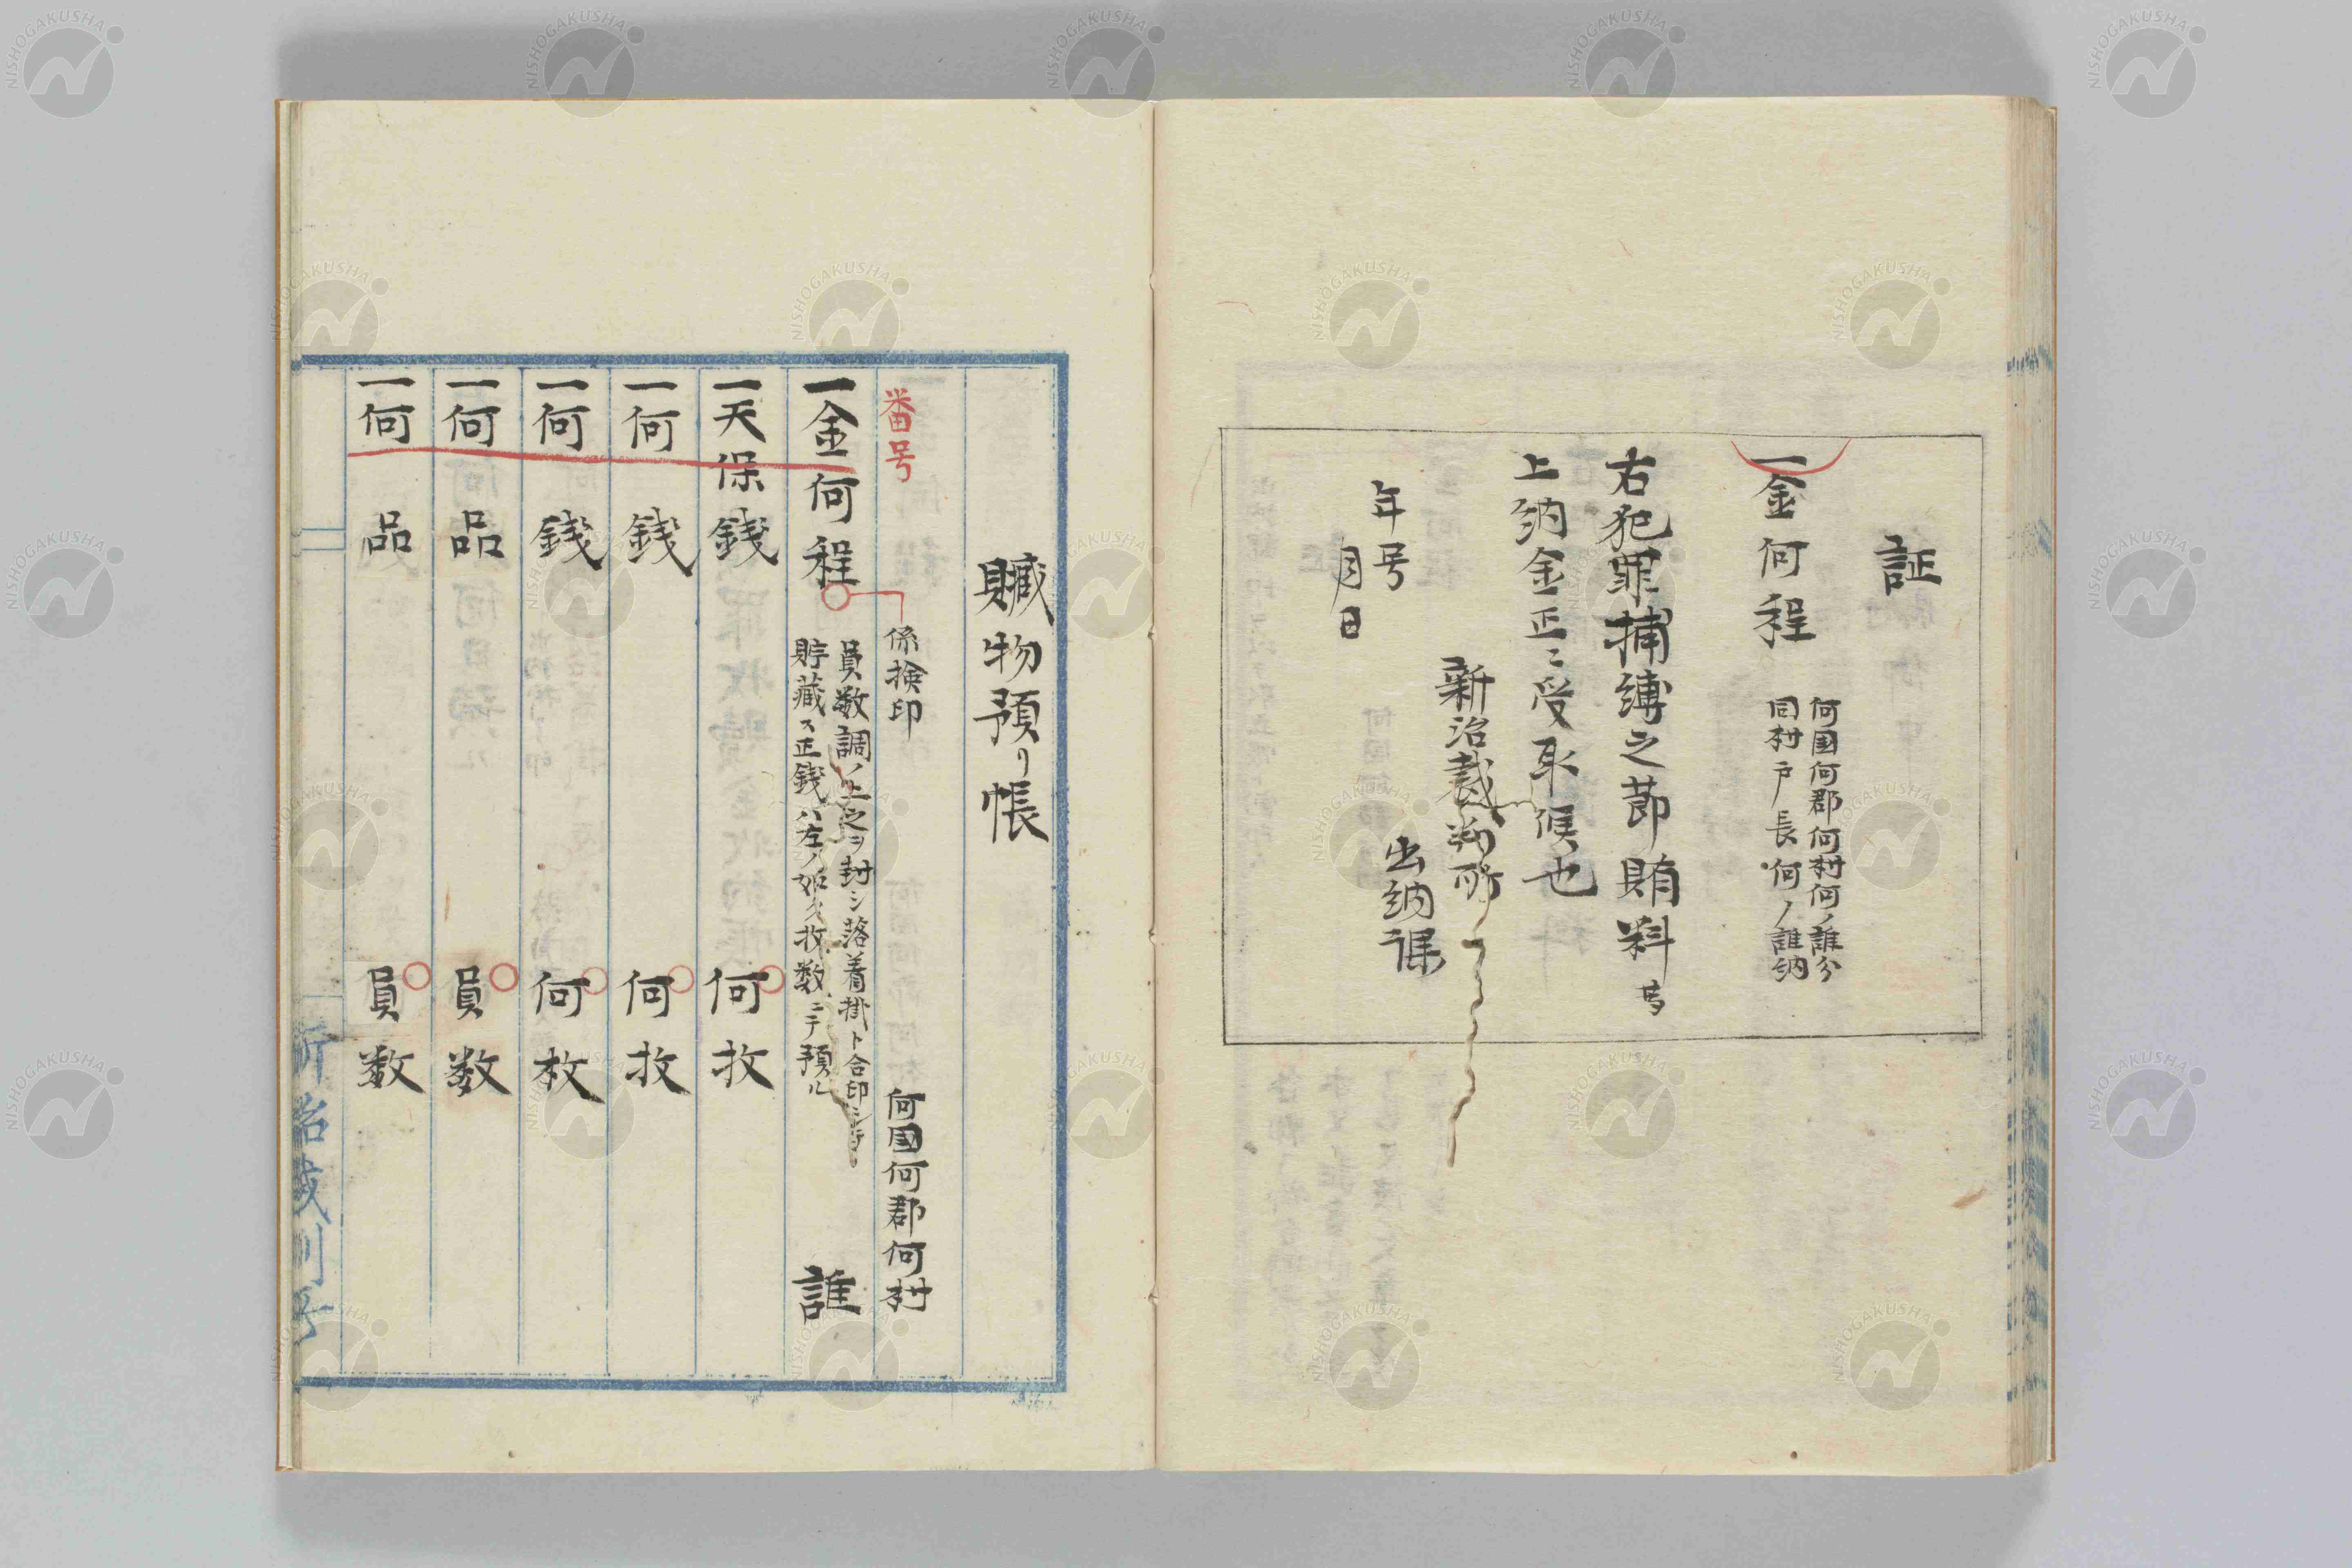 証
一金何程
何国何郡何村何ノ誰分
同村戸長何ノ誰納
右犯罪捕縛之節賄料
上納金正ニ受取候也
新治裁判所
出納課
年号
月日
贓物預リ帳
番号
係検印
何國何郡何村
一金何程
員数調ノ上之ヲ封シ落着掛ト合印シ
貯藏ス正銭ハ左ノ如ク枚数ニテ預ル
誰
一天保銭 何枚
一何銭 何枚
一何銭 何枚
一何品 員数
一何品 員数
新治裁判所
NISHOGAKUSHA